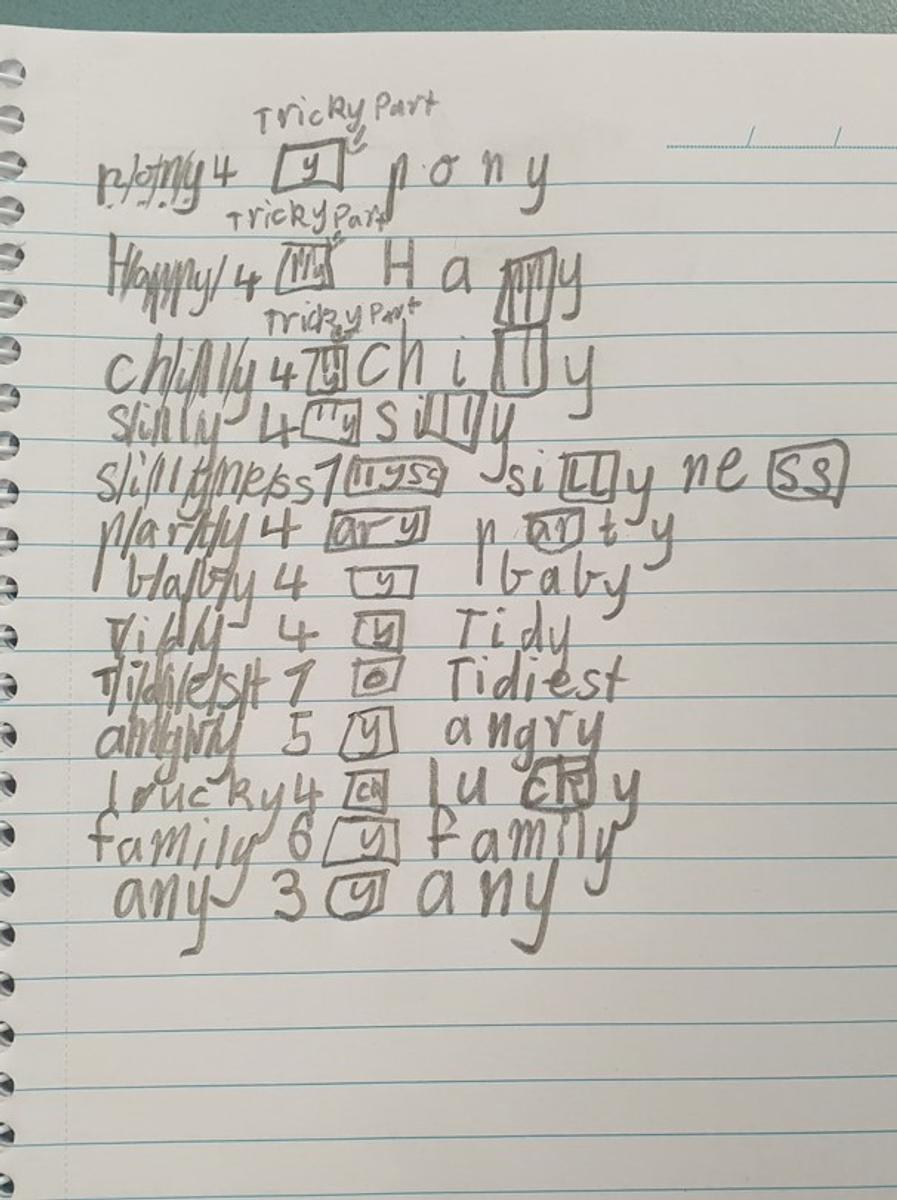 Tricky Part
p/o/n/y 4 y p o n y
Tricky Part
H/a/pp/y/ 4 ppy H a pp y
Tricky Part
ch/i/ll/y 4 lly ch i ll y
s/i/ll/y 4 lly s i ll y
s/i/ll/y/n/e/ss 7 llyss si ll y ne ss
p/ar/t/y 4 ar y p ar t y
b/a/b/y 4 y baby
T/i/d/y 4 y Tidy
T/i/d/i/e/s/t 7 o Tidiest
a/n/g/r/y 5 y angry
4 ck lu ck y
family 6 y family
any 3 y any